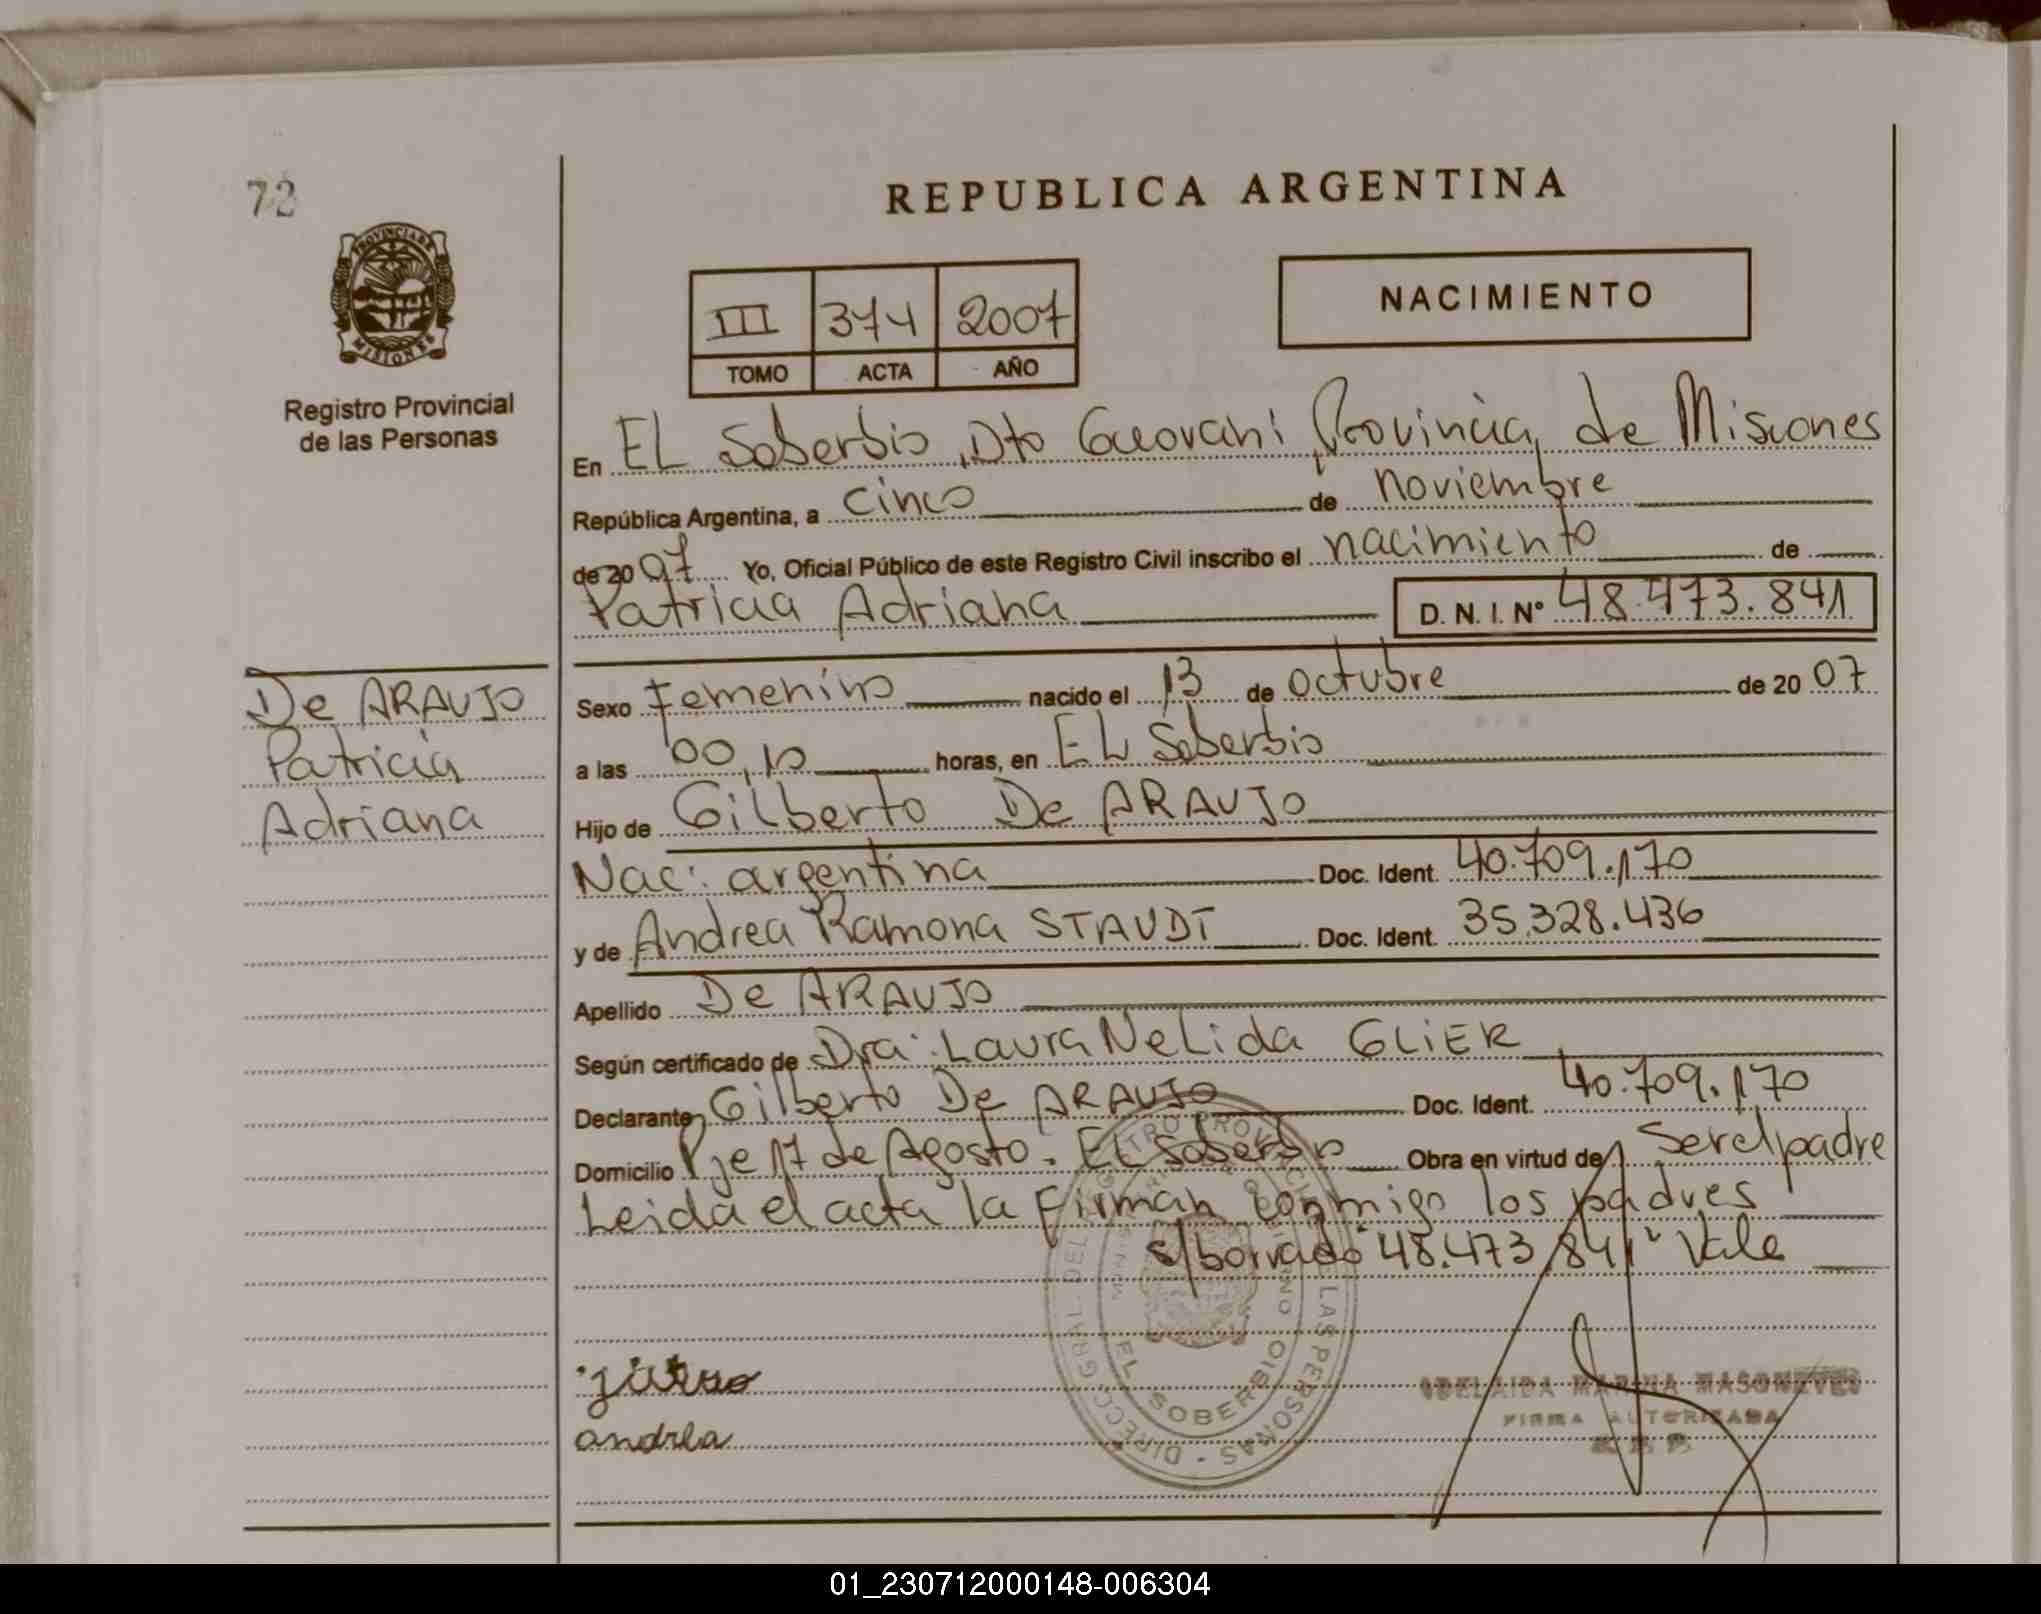 72
REPUBLICA ARGENTINA
PROVINCIA DE
MISIONES
Registro Provincial
de las Personas
III 374 2007
TOMO ACTA AÑO
NACIMIENTO
En EL Soberbio, Dto Gueovani, Provincia de Misiones
República Argentina, a cinco de noviembre
de 2007 Yo, Oficial Público de este Registro Civil inscribo el nacimiento de
Patricia Adriana D. N. I. N° 48.473.841
De ARAUJO
Patricia
Adriana
Sexo Femenino nacido el 13 de octubre de 2007
a las 00,10 horas, en EL Soberbio
Hijo de Gilberto De ARAUJO
Nac: argentina Doc. Ident. 40.709.170
y de Andrea Ramona STAUDT Doc. Ident. 35.328.436
Apellido De ARAUJO
Según certificado de Dra: Laura NeLida GLIER
Declarante Gilberto De ARAUJO Doc. Ident. 40.709.170
Domicilio Pje 17 de Agosto. EL Soberbio Obra en virtud de Ser el padre
Leida el acta la firman conmigo los padres
s/borrado "48.473.841" Vale
andrea
DIRECC. GRAL. DEL REGISTRO PROVINCIAL DE LAS PERSONAS
EL SOBERBIO
ADELAIDA MARINA MASONEVES
FIRMA AUTORIZADA
01_230712000148-006304